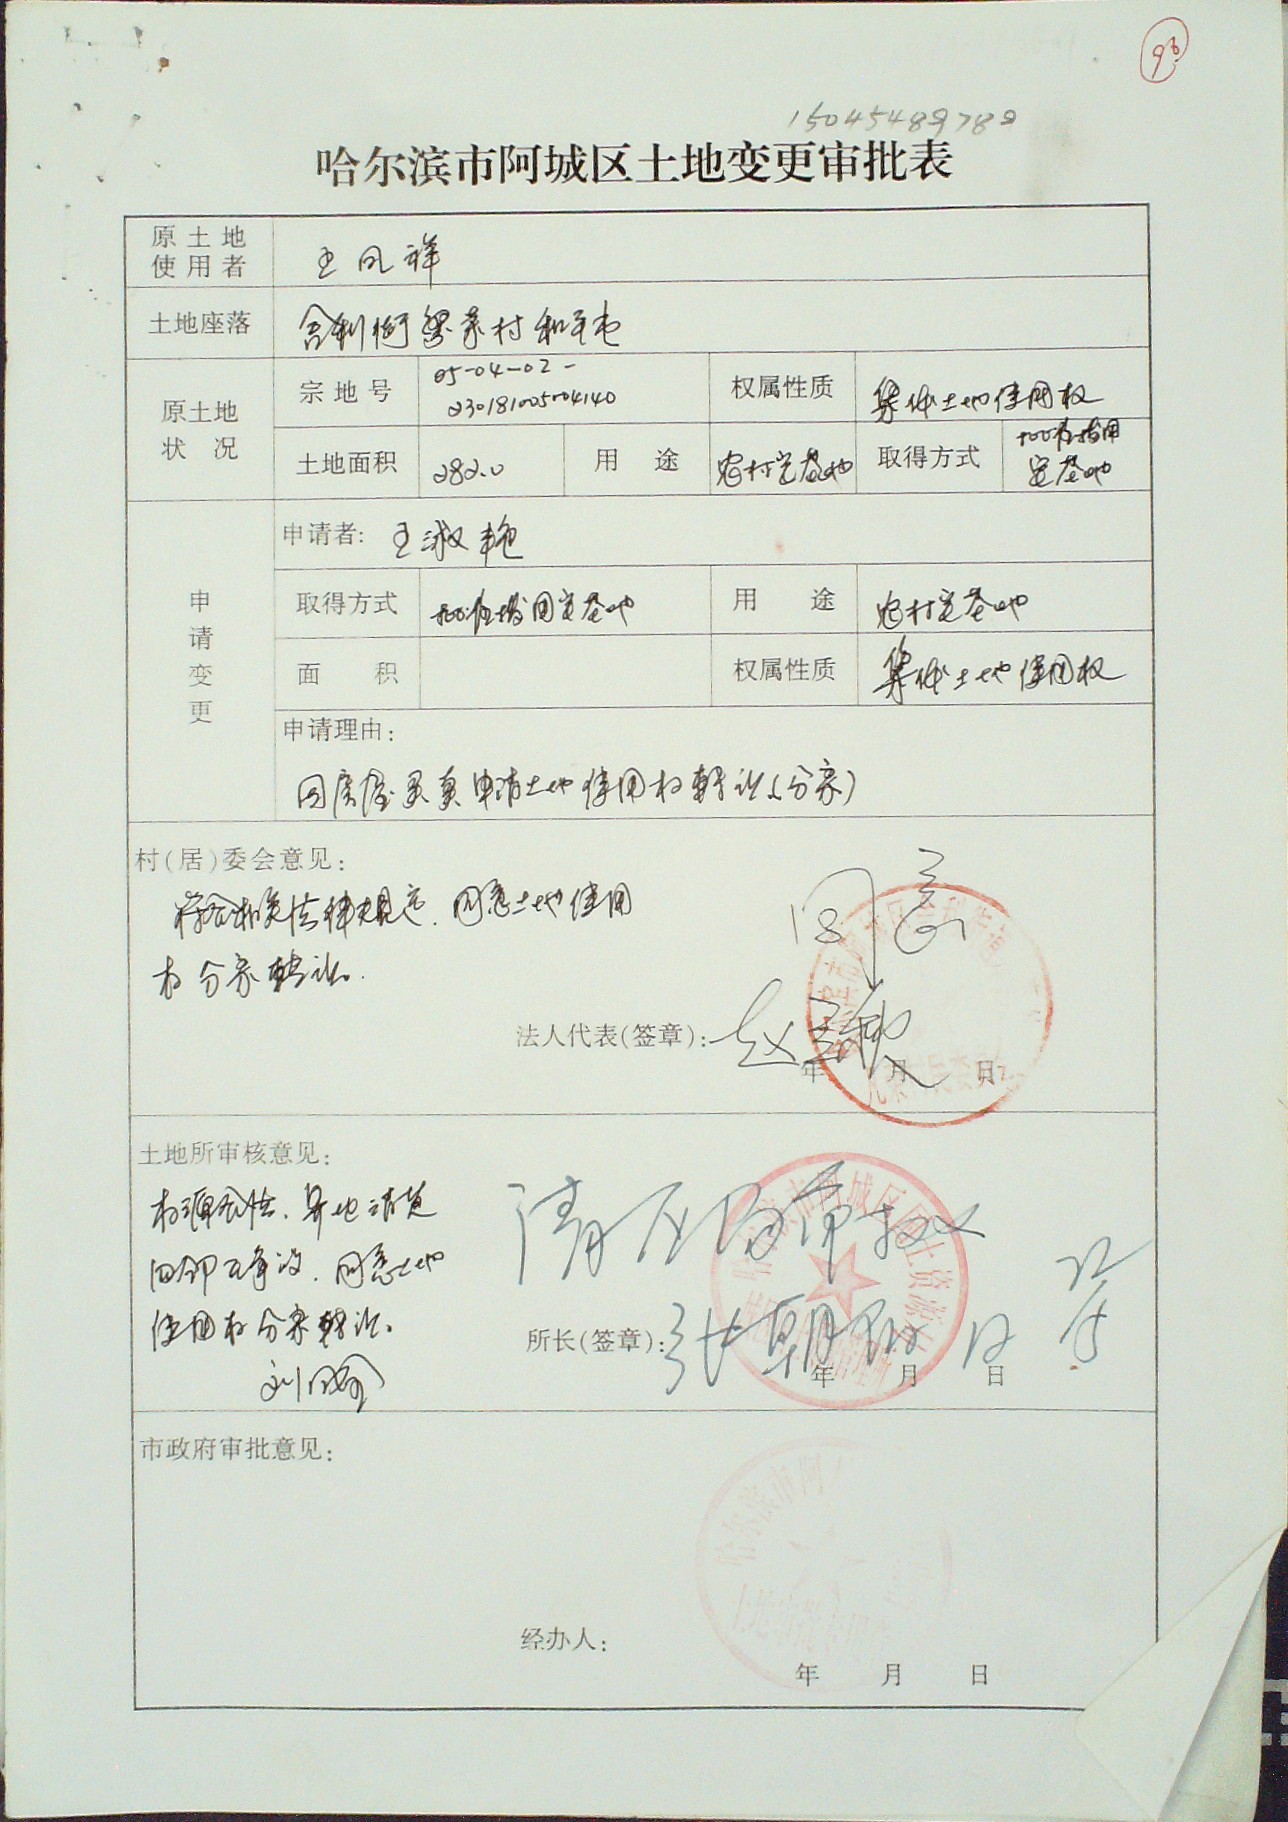 96
15045489789
哈尔滨市阿城区土地变更审批表
原土地使用者 王凤祥
土地座落 舍利街 村和平屯
原土地状况
宗地号 05-04-02-
230181005004140
权属性质 集体土地使用权
土地面积 282.0 用途 农村宅基地 取得方式 批准拨用宅基地
申请变更
申请者: 王淑艳
取得方式 批准拨用宅基地 用途 农村宅基地
面积 权属性质 集体土地使用权
申请理由:
因房屋买卖申请土地使用权转让(分家)
村(居)委会意见:
符合相关法律规定.同意土地使用
权分家转让.
同意
法人代表(签章):
年 月 日
土地所审核意见:
权源合法.界地清楚
四邻无争议.同意土地
使用权分家转让.
请区局审批
所长(签章): 张朝
年 月 日
市政府审批意见:
经办人:
年 月 日